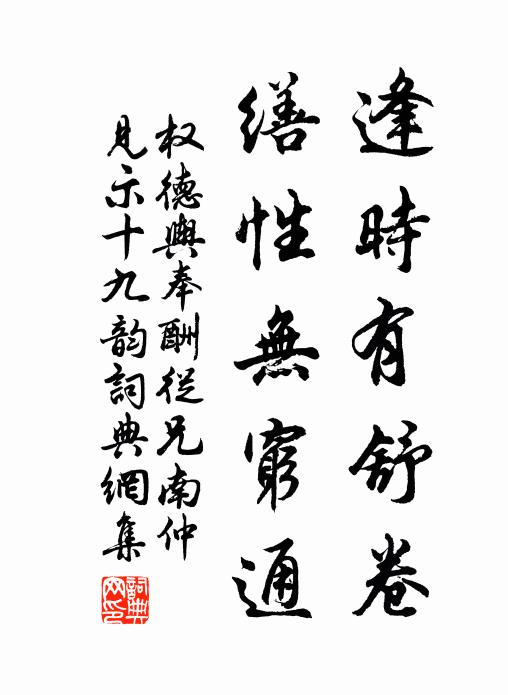 逢時有舒卷
繕性無窮通
权德輿奉酬從兄南仲
見示十九韵詞典網集
詞典网印